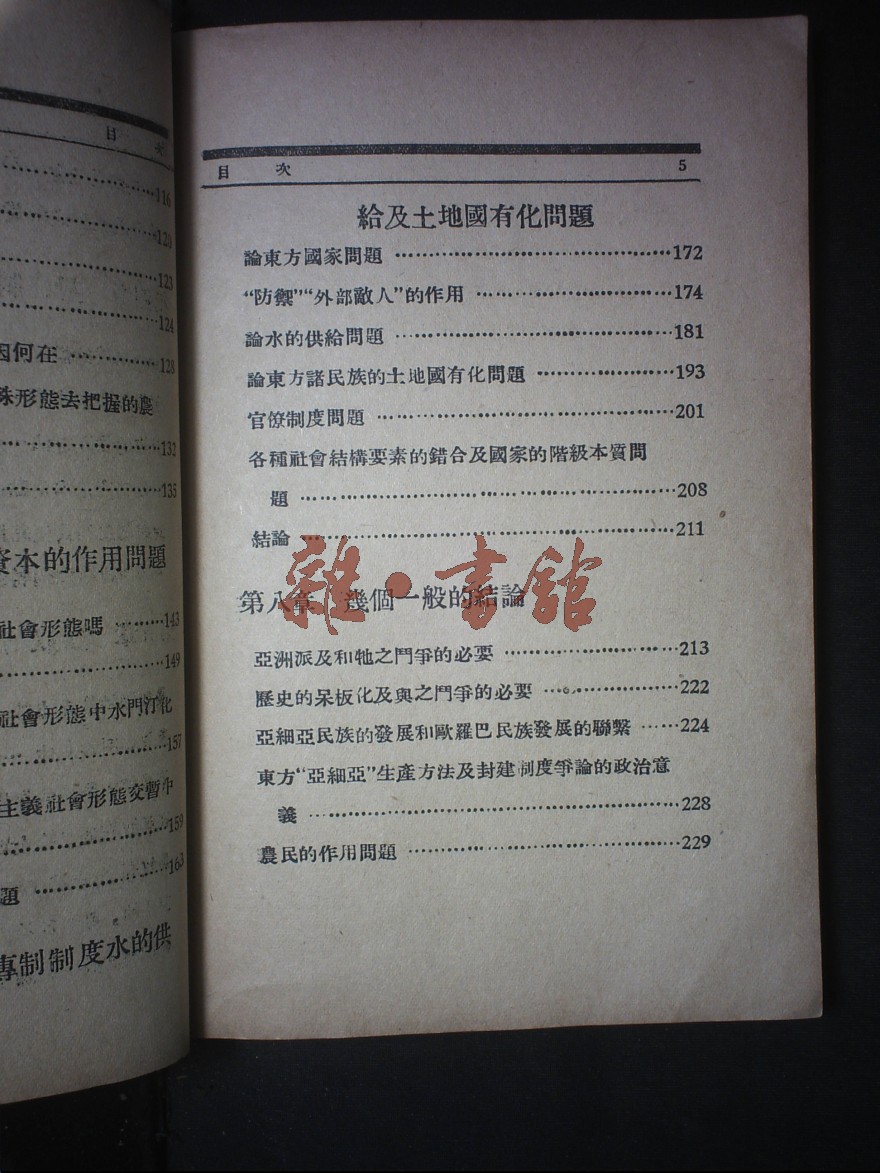 目 次
116
120
123
124
因何在 ………………128
殊形態去把握的農
132
135
資本的作用問題
社會形態嗎 ………143
149
社會形態中水門汀化
157
主義社會形態交暫中
159
題 ………………163
專制制度水的供
目 次 5
給及土地國有化問題
論東方國家問題 ………………………………172
“防禦”“外部敵人”的作用 ………………………174
論水的供給問題 ………………………………181
論東方諸民族的土地國有化問題 ………………193
官僚制度問題 …………………………………201
各種社會結構要素的錯合及國家的階級本質問
題 ………………………………………………208
結論 ……………………………………………211
第八章 幾個一般的結論
亞洲派及和牠之鬥爭的必要 ……………………213
歷史的呆板化及與之鬥爭的必要 ………………222
亞細亞民族的發展和歐羅巴民族發展的聯繫 ……224
東方“亞細亞”生產方法及封建制度爭論的政治意
義 ………………………………………………228
農民的作用問題 ………………………………229
雜·書館